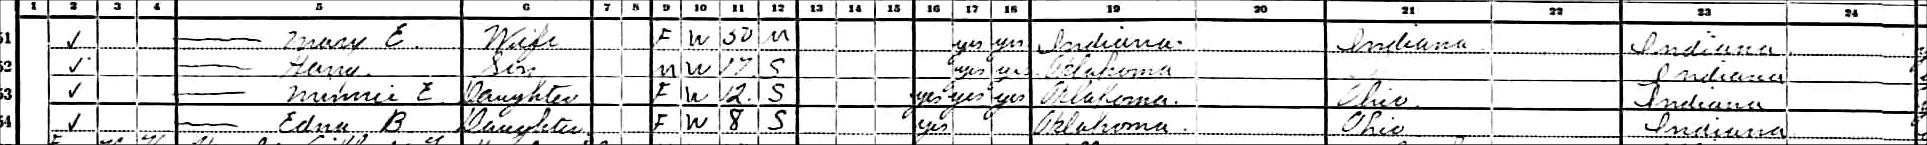 1 2 3 4 5 6 7 8 9 10 11 12 13 14 15 16 17 18 19 20 21 22 23 24
51 ✓ —— Mary E. Wife F W 50 M yes yes Indiana. Indiana Indiana.
52 ✓ —— Harry. Son M W 17 S yes yes Oklahoma Indiana
53 ✓ —— Minnie E Daughter F W 12. S yes yes yes Oklahoma. Ohio. Indiana
54 ✓ —— Edna B Daughter. F W 8 S yes Oklahoma. Ohio Indiana